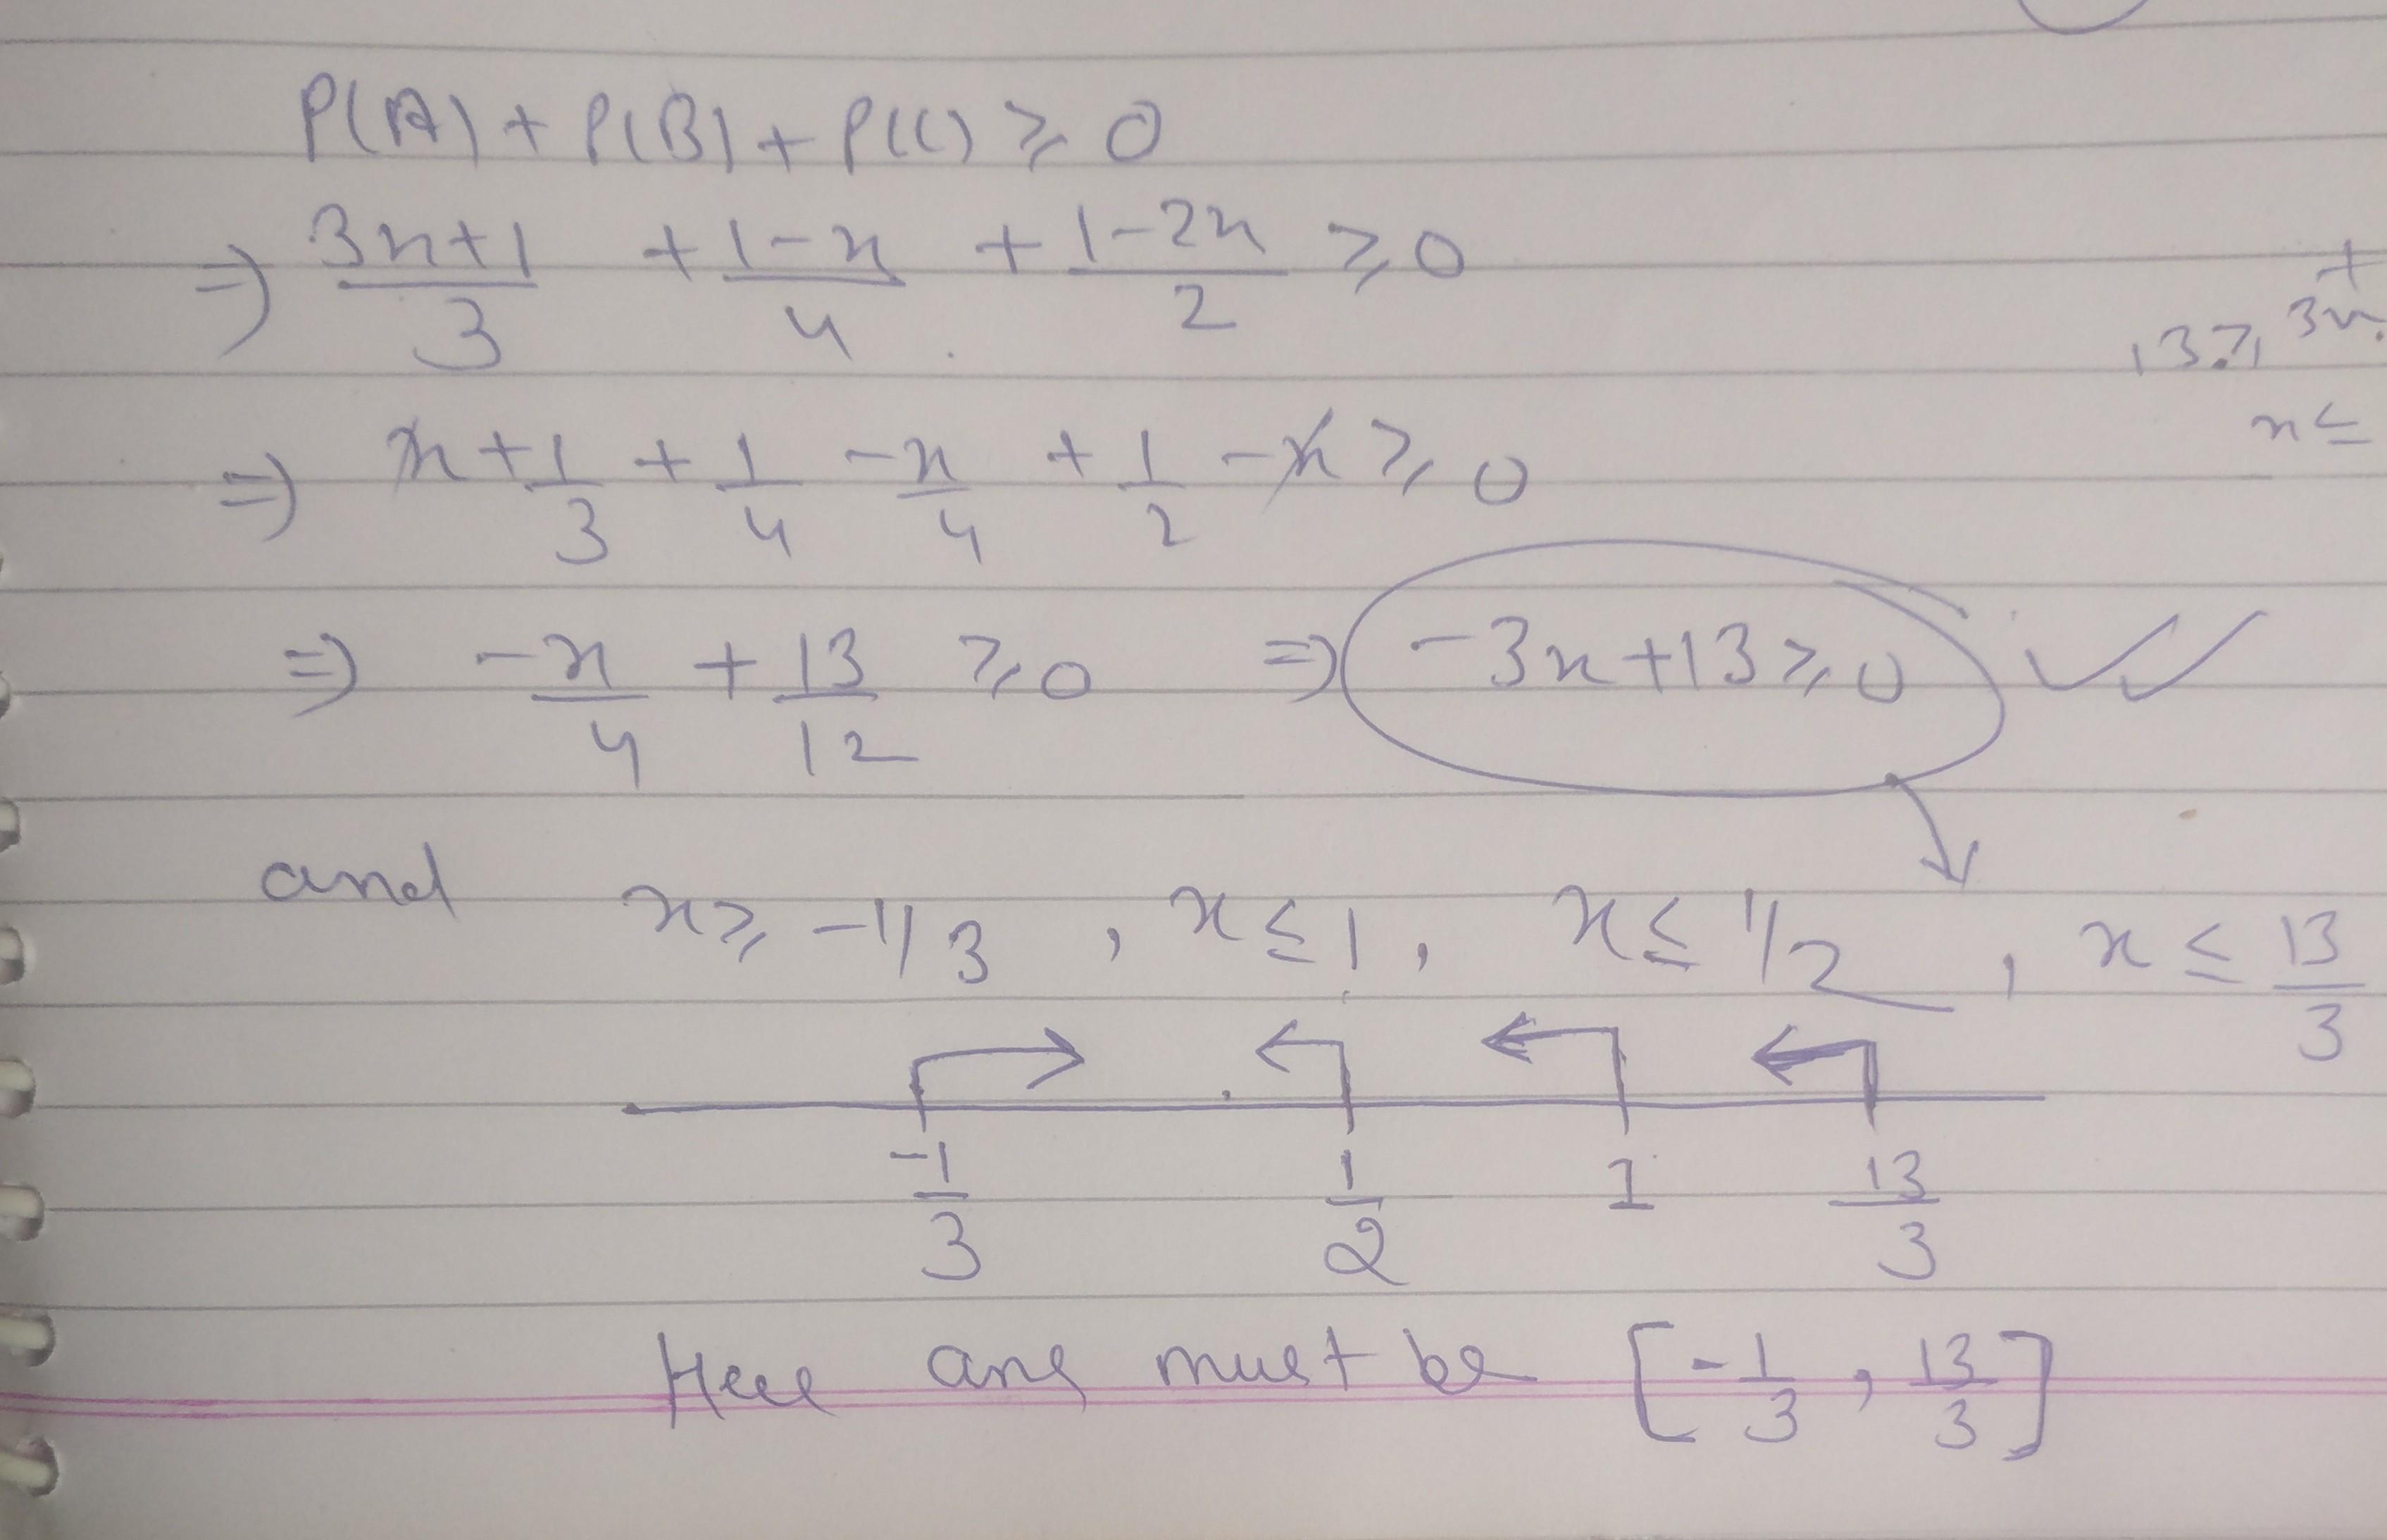 P(A) + P(B) + P(C) ≥ 0
⇒ (3x+1)/3 + (1-x)/4 + (1-2x)/2 ≥ 0
13 ≥ 3x
x ≤
⇒ x + 1/3 + 1/4 - x/4 + 1/2 - x ≥ 0
⇒ -x/4 + 13/12 ≥ 0 ⇒ -3x + 13 ≥ 0
and x ≥ -1/3 , x ≤ 1 , x ≤ 1/2 , x ≤ 13/3
-1/3 1/2 1 13/3
Here ans must be [-1/3 , 13/3]